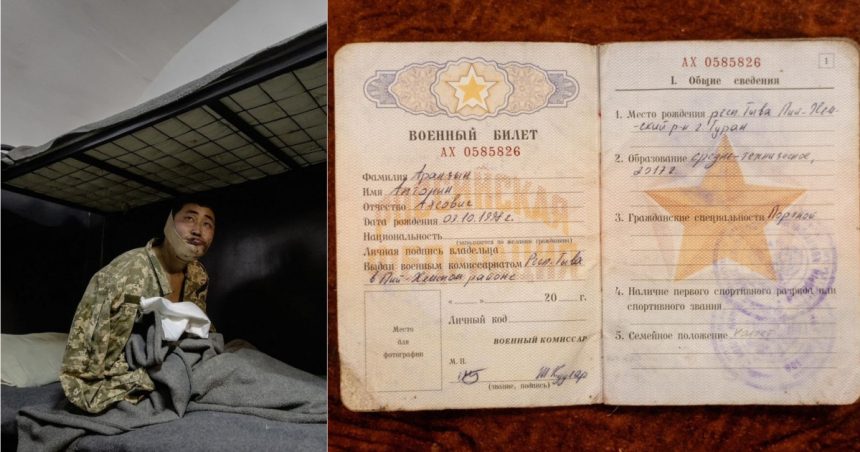 ВОЕННЫЙ БИЛЕТ
АХ 0585826
Фамилия Аранчын
Имя
Отчество Алексович
Дата рождения 03.10.1997 г.
Национальность
(заполняется по желанию гражданина)
Личная подпись владельца
Выдан военным комиссариатом Респ. Тыва
в Пий-Хемском районе
Место
для
фотографии
« » 20 г.
Личный код
ВОЕННЫЙ КОМИССАР
М. П.
(звание, подпись)
АХ 0585826
1
I. Общие сведения
1. Место рождения респ. Тыва Пий-Хем-
ский р-н г. Туран
2. Образование средне-техническое,
2017 г.
3. Гражданские специальности Портной
4. Наличие первого спортивного разряда или
спортивного звания
5. Семейное положение холост